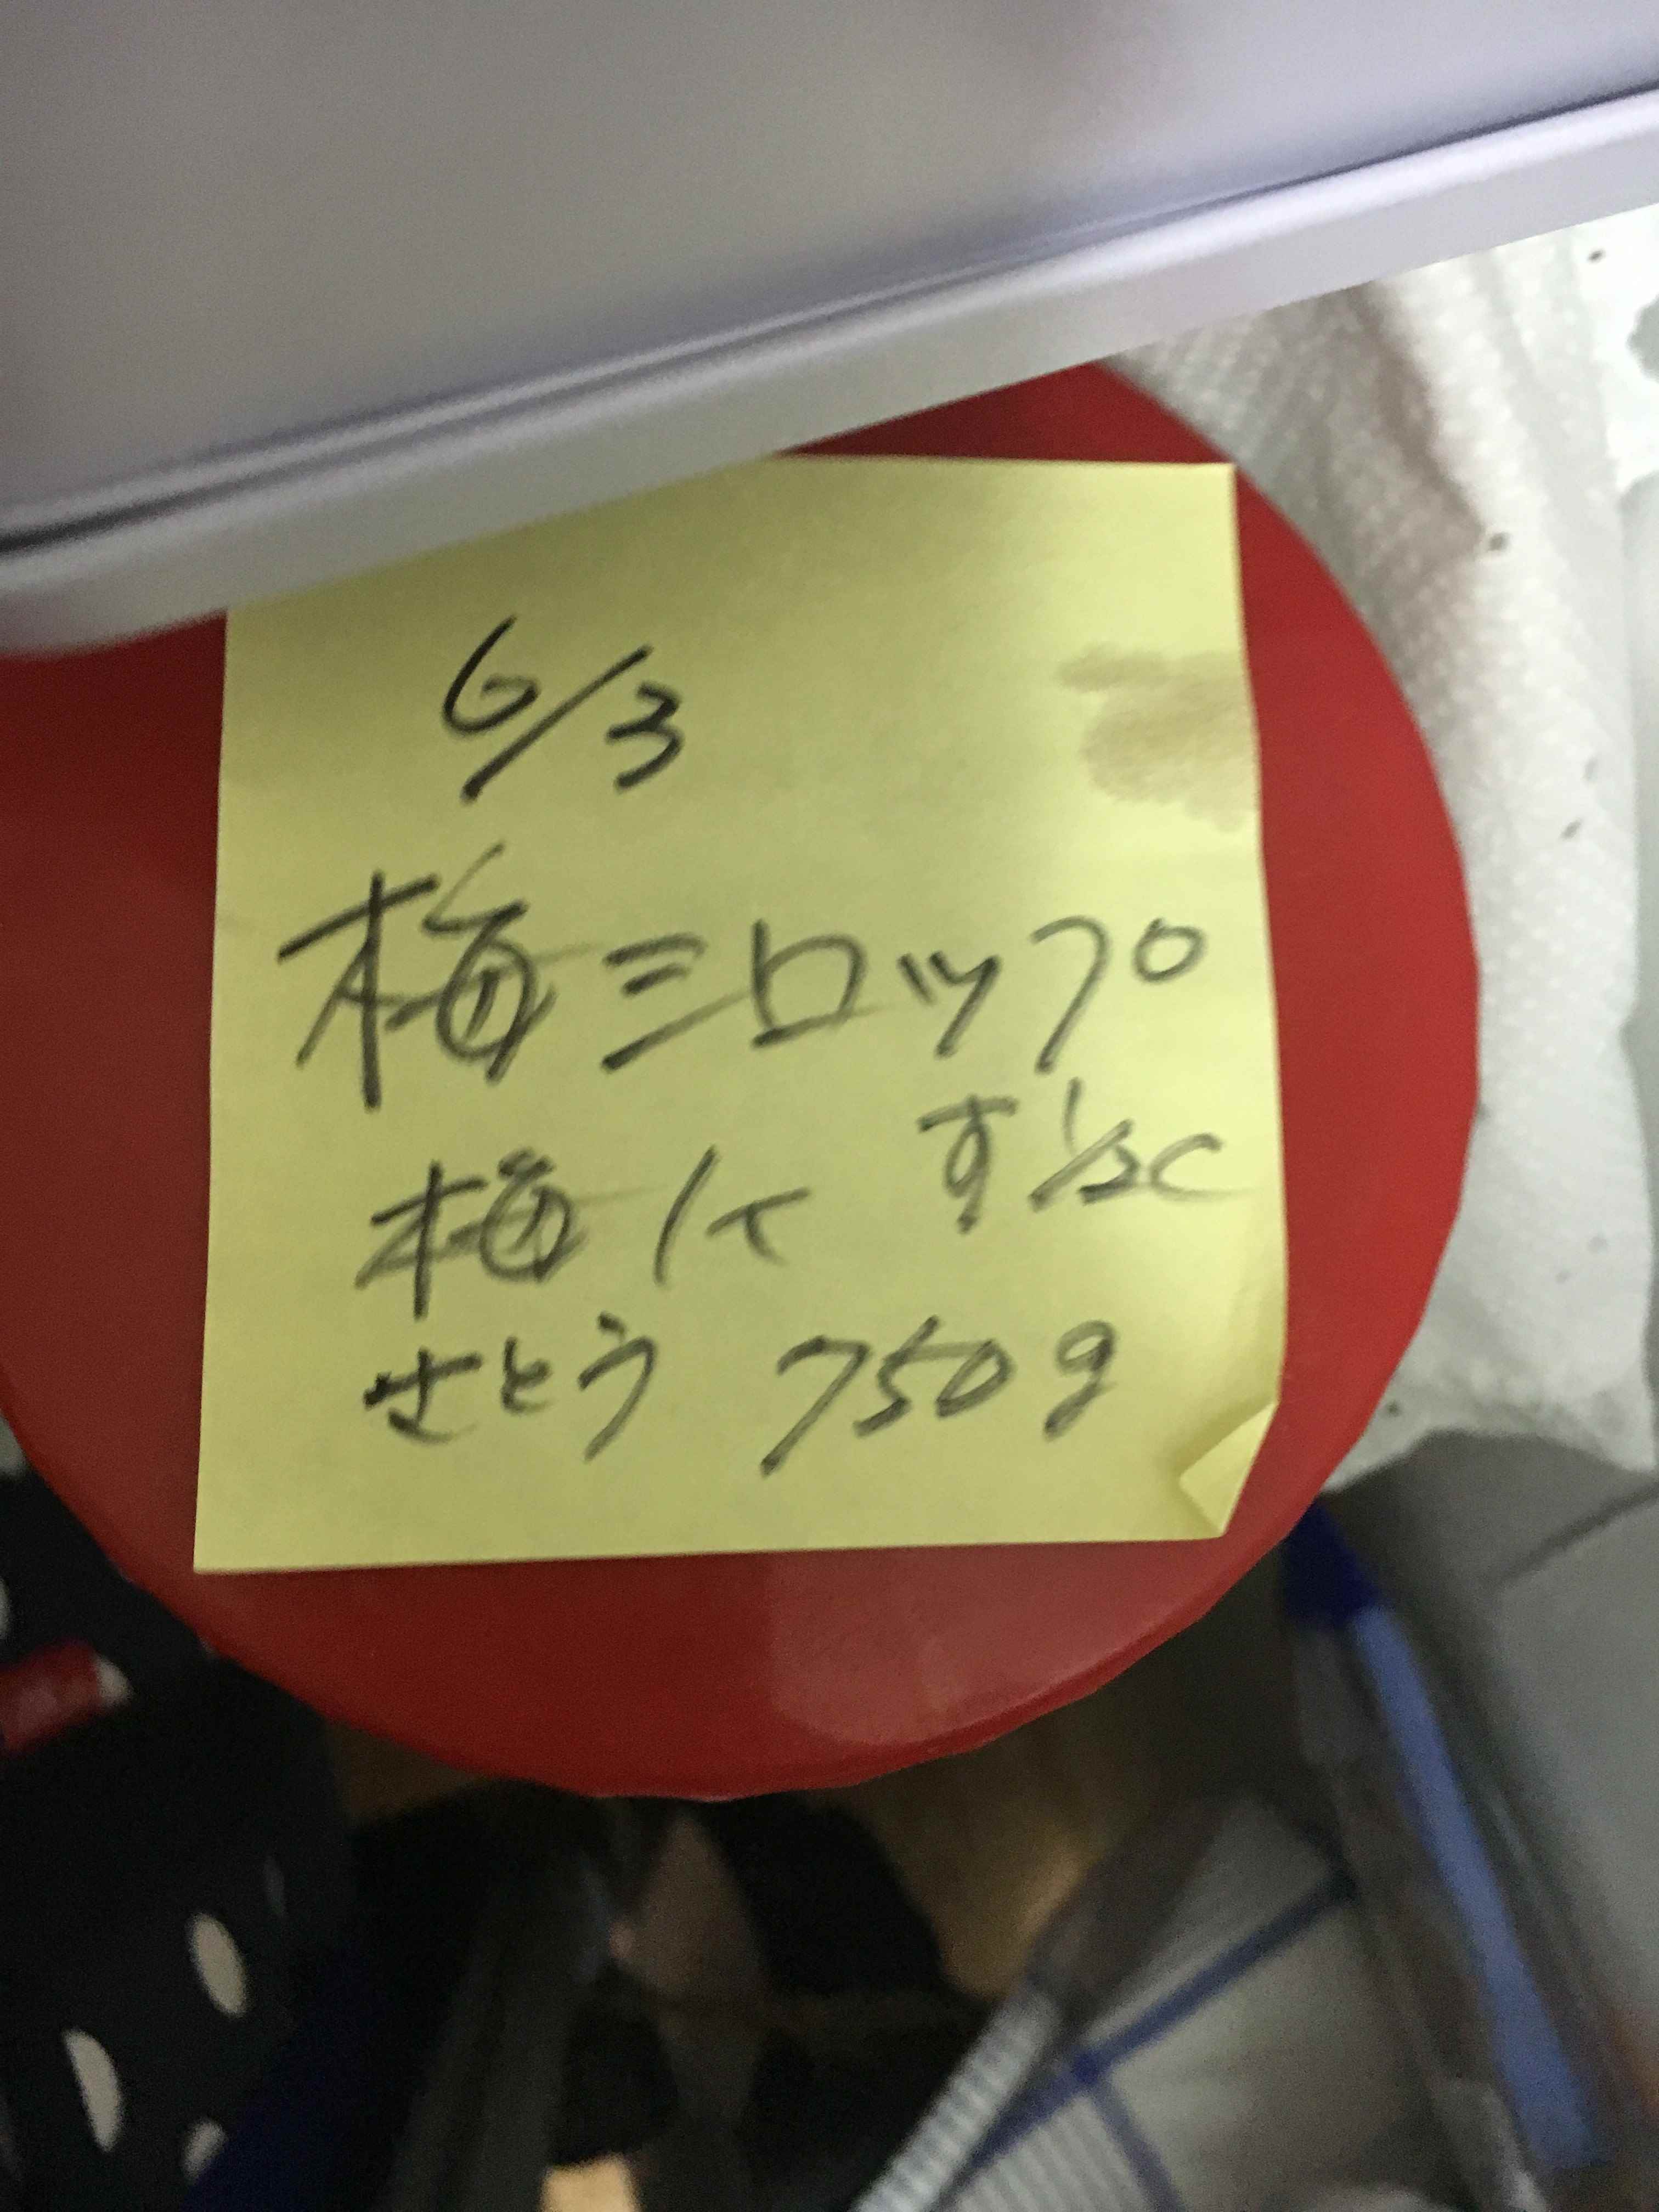 6/3
梅シロップ
す 1/2C
梅 1K
さとう 750g